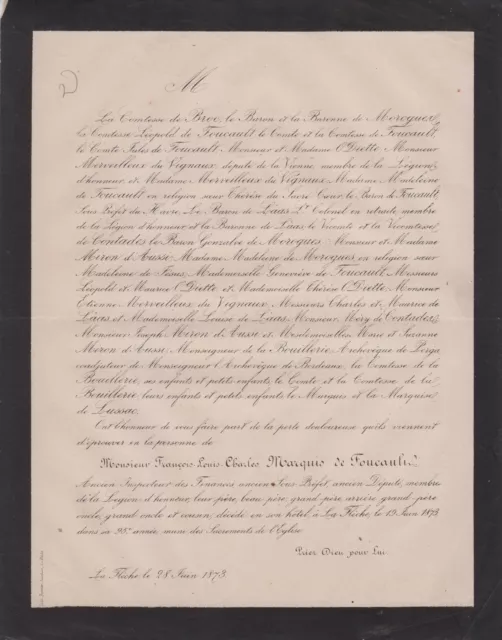 M
La Comtesse de Broc, le Baron et la Baronne de Morogues,
la Comtesse Léopold de Foucault, le Comte et la Comtesse de Foucault,
le Comte Jules de Foucault, Monsieur et Madame O'Diette Monsieur
Merveilleux du Vignaux, député de la Vienne, membre de la Légion
d'honneur, et Madame Merveilleux du Vignaux, Madame Madeleine
de Foucault en religion sœur Thérèse du Sacré Cœur, le Baron de Foucault,
Sous Préfet du Havre, Le Baron de Laas Lt Colonel en retraite membre
de la Légion d'honneur et la Baronne de Laas, le Vicomte et la Vicomtesse
de Contades, le Baron Gonzalve de Morogues, Monsieur et Madame
Miron d'Aussy, Madame Madeleine de Morogues en religion sœur
Madeleine de, Mademoiselle Geneviève de Foucault, Messieurs
Léopold et Maurice O'Diette et Mademoiselle Thérèse O'Diette, Monsieur
Etienne Merveilleux du Vignaux, Messieurs Charles et Maurice de
Laas et Mademoiselle Louise de Laas, Monsieur Méry de Contades,
Monsieur Joseph Miron d'Aussy et Mesdemoiselles Marie et Suzanne
Miron d'Aussy, Monseigneur de la Bouillerie, Archevêque de Perga
coadjuteur de Monseigneur l'Archevêque de Bordeaux, la Comtesse de la
Bouillerie, ses enfants et petits enfants, le Comte et la Comtesse de la
Bouillerie leurs enfants et petits enfants le Marquis et la Marquise
de Lussac,
Ont l'honneur de vous faire part de la perte douloureuse qu'ils viennent
d'éprouver en la personne de
Monsieur François-Louis-Charles Marquis de Foucault,
Ancien Inspecteur des Finances, ancien Sous Préfet, ancien Député, membre
de la Légion d'honneur, leur père, beau père, grand père, arrière grand père
oncle, grand oncle et cousin, décédé en son hôtel à La Flèche, le 19 Juin 1873
dans sa 93e année, muni des Sacrements de l'Eglise.
Priez Dieu pour Lui.
La Flèche le 28 Juin 1873